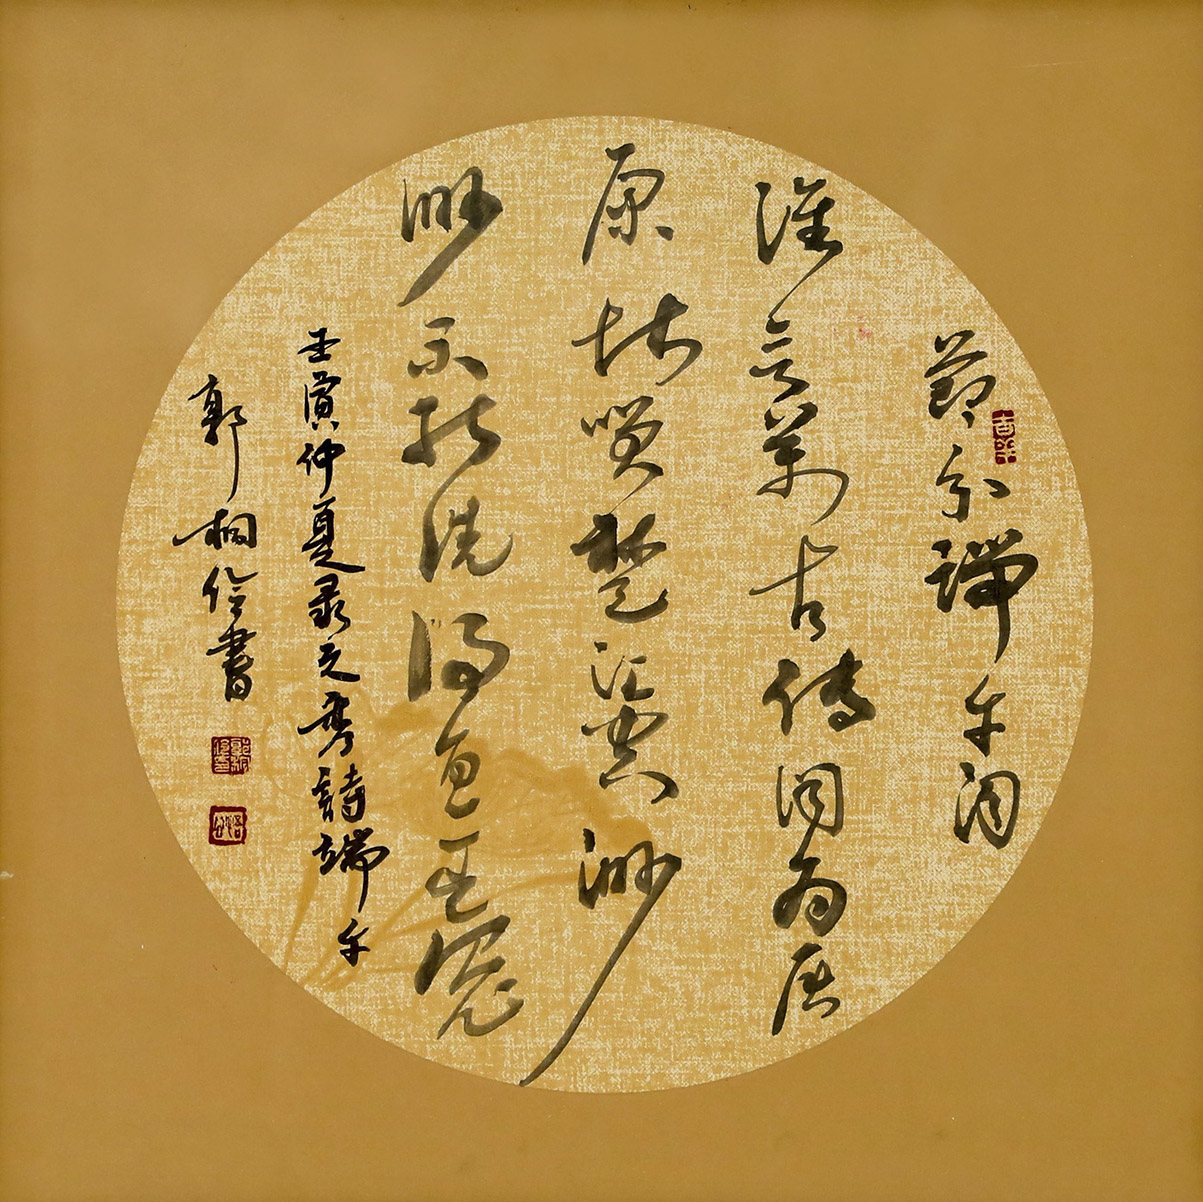 節分端午自
誰言萬古傳聞為屈
原堪笑楚江空渺
渺不能洗得直臣冤
壬寅仲夏录文秀詩端午
郭桐伶書